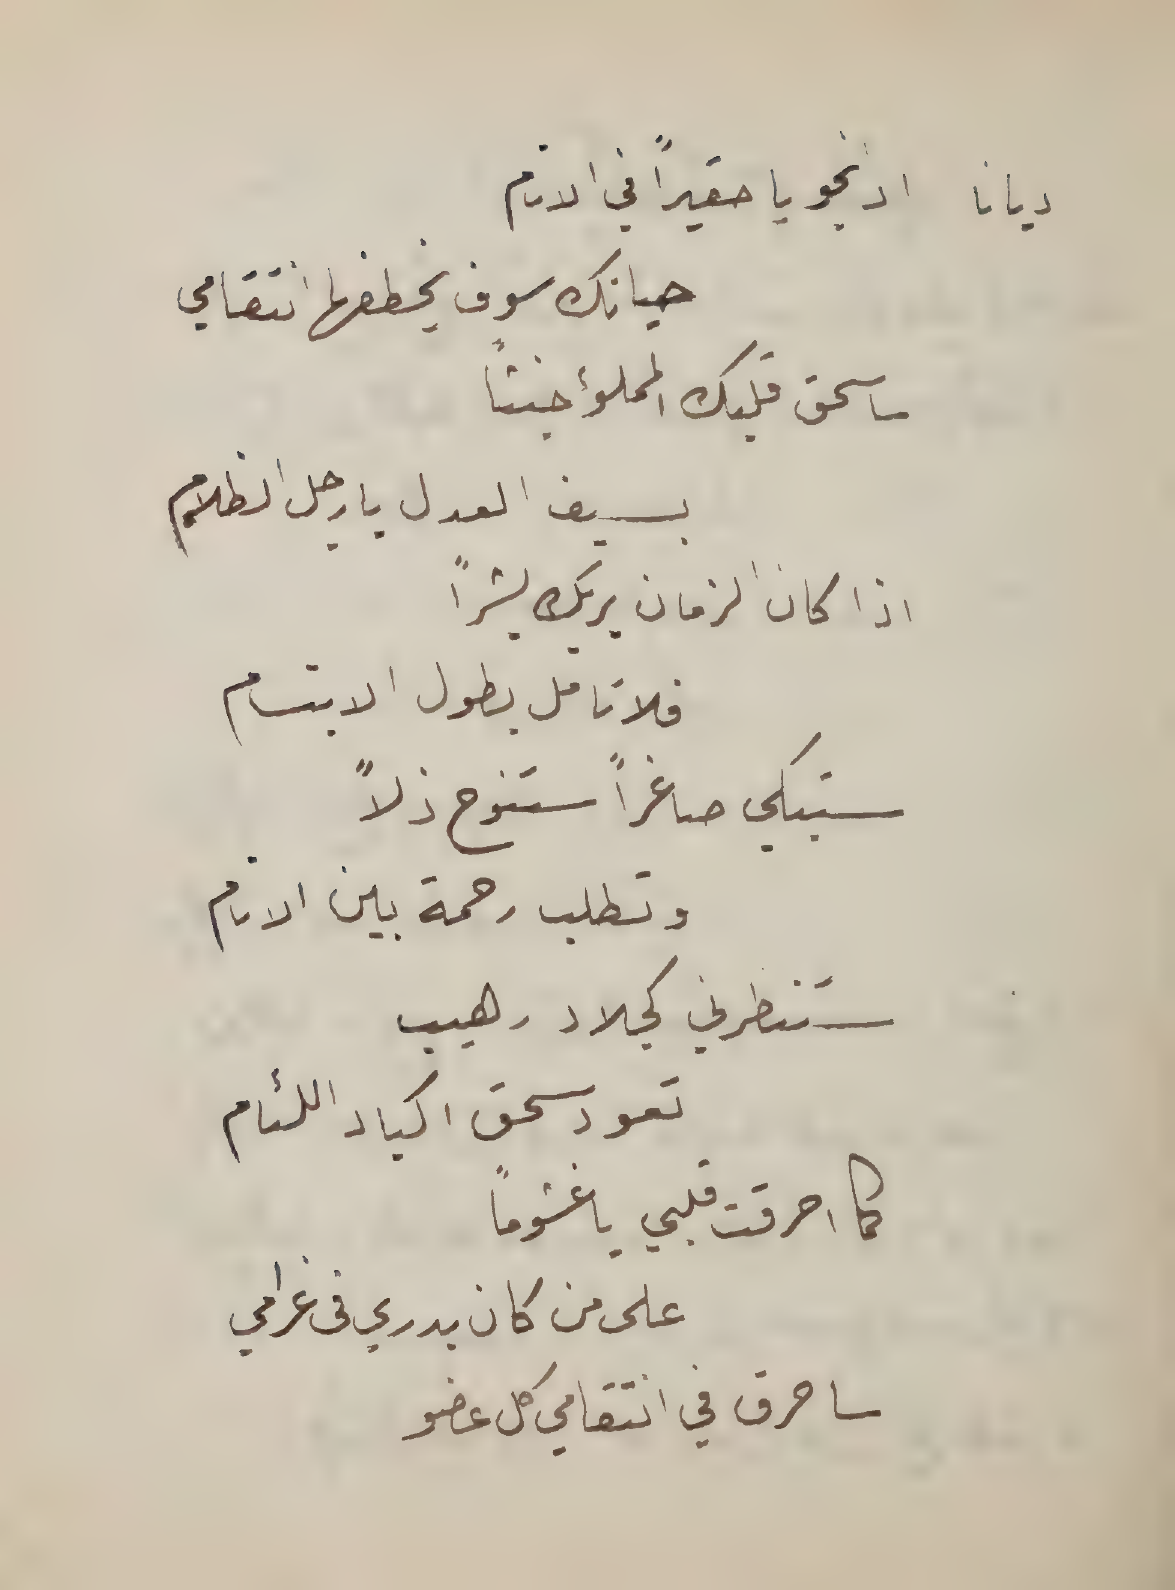 ديانا اذ نجو يا حقيراً في الانام
حياتك سوف يخطفها انتقامي
ساسحق قلبك المملوؤ خبثاً
بسيف العدل يا رجل الظلام
اذا كان الزمان يريك بشراً
فلا تامل بطول الابتسام
ستبكي صاغراً ستنوح ذلاً
وتطلب رحمة بين الانام
ستنظرني كجلاد رهيب
تعود سحق اكباد اللئام
كما احرقت قلبي يا غشوماً
على من كان يدري في غرامي
ساحرق في انتقامي كل عضو